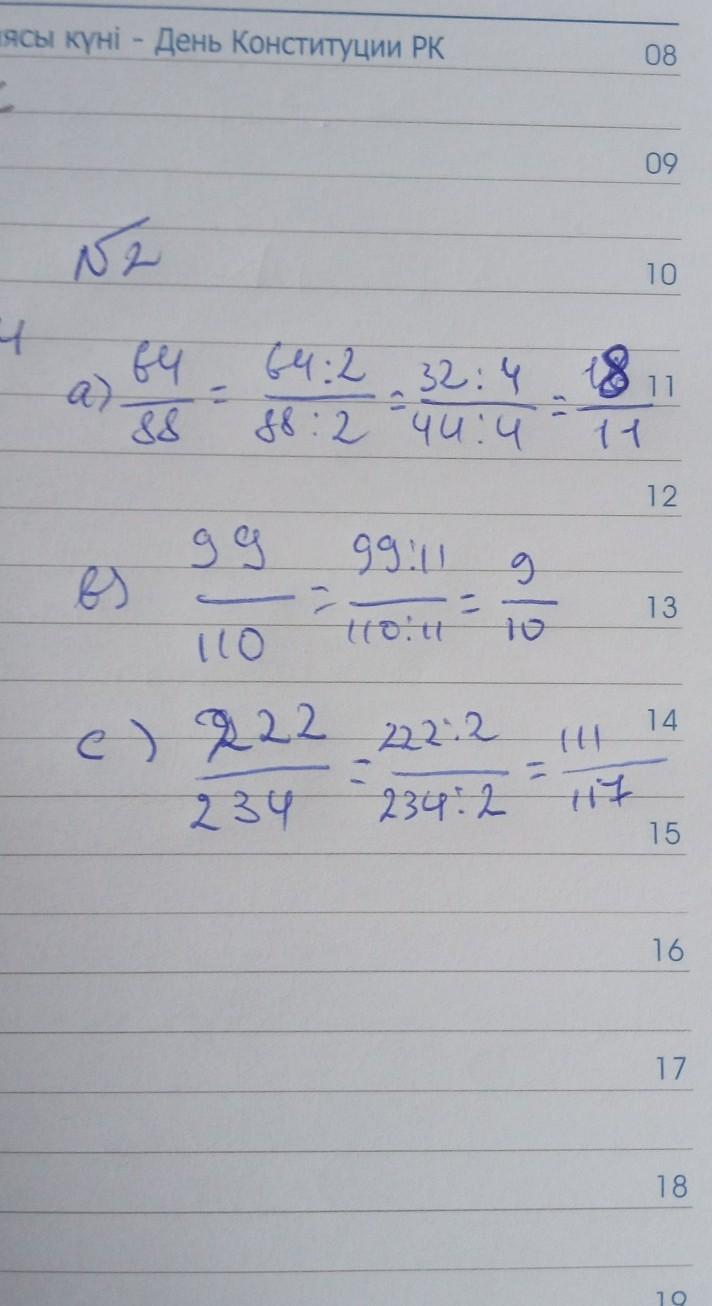 ясы күні - День Конституции РК
08
09
№2
10
4
a) 64/88 = 64:2/88:2 = 32:4/44:4 = 8/11
11
12
в) 99/110 = 99:11/110:11 = 9/10
13
c) 222/234 = 222:2/234:2 = 111/117
14
15
16
17
18
19